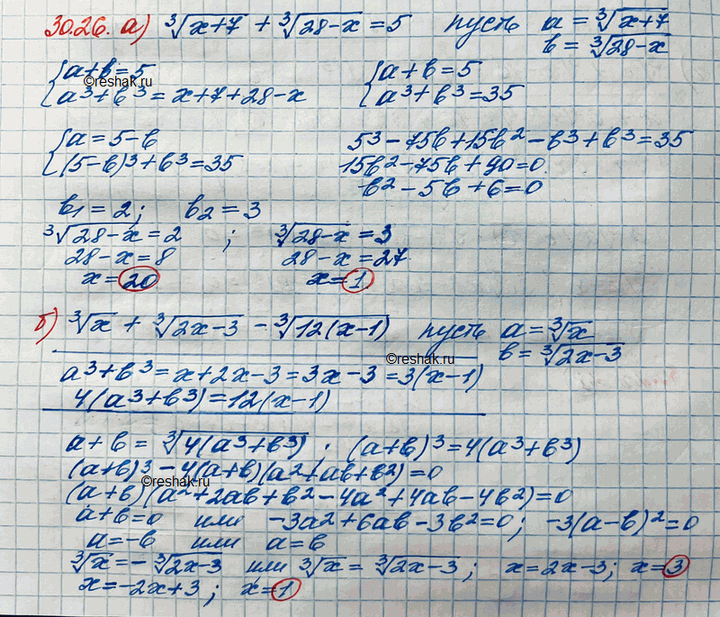 30.26. а) ∛(x+7) + ∛(28-x) = 5 пусть a = ∛(x+7)
b = ∛(28-x)
{ a+b=5 { a+b=5
©reshak.ru
a³+b³=x+7+28-x a³+b³=35
{ a=5-b 5³-75b+15b²-b³+b³=35
(5-b)³+b³=35 15b²-75b+90=0
b²-5b+6=0
b₁=2; b₂=3
∛(28-x)=2 ; ∛(28-x)=3
28-x=8 28-x=27
x=20 x=1
б) ∛x + ∛(2x-3) - ∛(12(x-1)) пусть a=∛x
©reshak.ru
b=∛(2x-3)
a³+b³=x+2x-3=3x-3=3(x-1)
4(a³+b³)=12(x-1)
a+b=∛(4(a³+b³)); (a+b)³=4(a³+b³)
(a+b)³-4(a+b)(a²+ab+b²)=0
©reshak.ru
(a+b)(a²+2ab+b²-4a²+4ab-4b²)=0
a+b=0 или -3a²+6ab-3b²=0; -3(a-b)²=0
a=-b или a=b
∛x=-∛(2x-3) или ∛x=∛(2x-3); x=2x-3; x=3
x=-2x+3; x=1